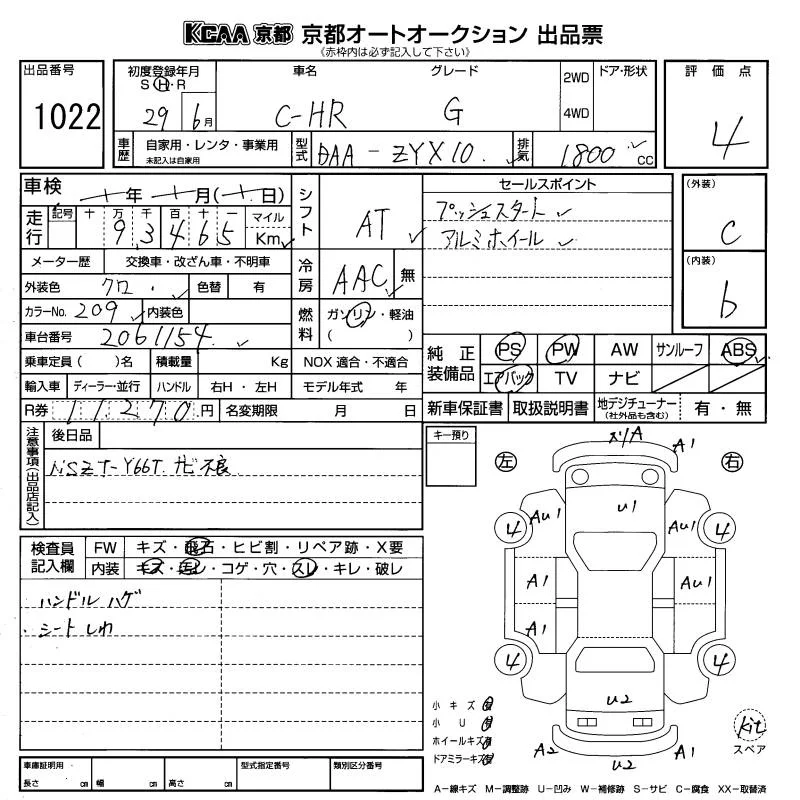 KCAA 京都 京都オートオークション 出品票
《赤枠内は必ず記入して下さい》
出品番号 1022
初度登録年月 S・H・R 29年 6月
車名 C-HR
グレード G
2WD 4WD
ドア・形状
評価点 4
車歴 自家用・レンタ・事業用 未記入は自家用
型式 DAA-ZYX10
排気 1800 cc
車検 年 月( 日)
走行 記号 十万千百十一 93465 マイル Km
メーター歴 交換車・改ざん車・不明車
外装色 クロ 色替 有
カラーNo. 209 内装色
車台番号 2061154
乗車定員( )名 積載量 Kg
輸入車 ディーラー・並行 ハンドル 右H・左H
R券 11270円 名変期限 月 日
シフト AT
冷房 AAC 無
燃料 ガソリン・軽油 ( )
NOX 適合・不適合
モデル年式 年
セールスポイント
プッシュスタート
アルミホイール
(外装) C
(内装) b
純正装備品 PS PW AW サンルーフ ABS
エアバック TV ナビ
新車保証書 取扱説明書 地デジチューナー (社外品も含む) 有・無
注意事項(出品店記入)
後日品
NSZT-Y66T ナビ不良
キー預り
検査員記入欄
FW キズ・飛石・ヒビ割・リペア跡・X要
内装 キズ・汚レ・コゲ・穴・スレ・キレ・破レ
ハンドル ハゲ
・シート しわ
左 右
ズリA A1
4 AU1 U1 A1 4
A1 AU1
A1
4 4
U2
A2 U2 A1
小キズ 有
小U 有
ホイールキズ 有
ドアミラーキズ 有
kit
スペア
A-線キズ M-調整跡 U-凹み W-補修跡 S-サビ C-腐食 XX-取替済
車庫証明用 長さ cm 幅 cm 高さ cm
型式指定番号
類別区分番号